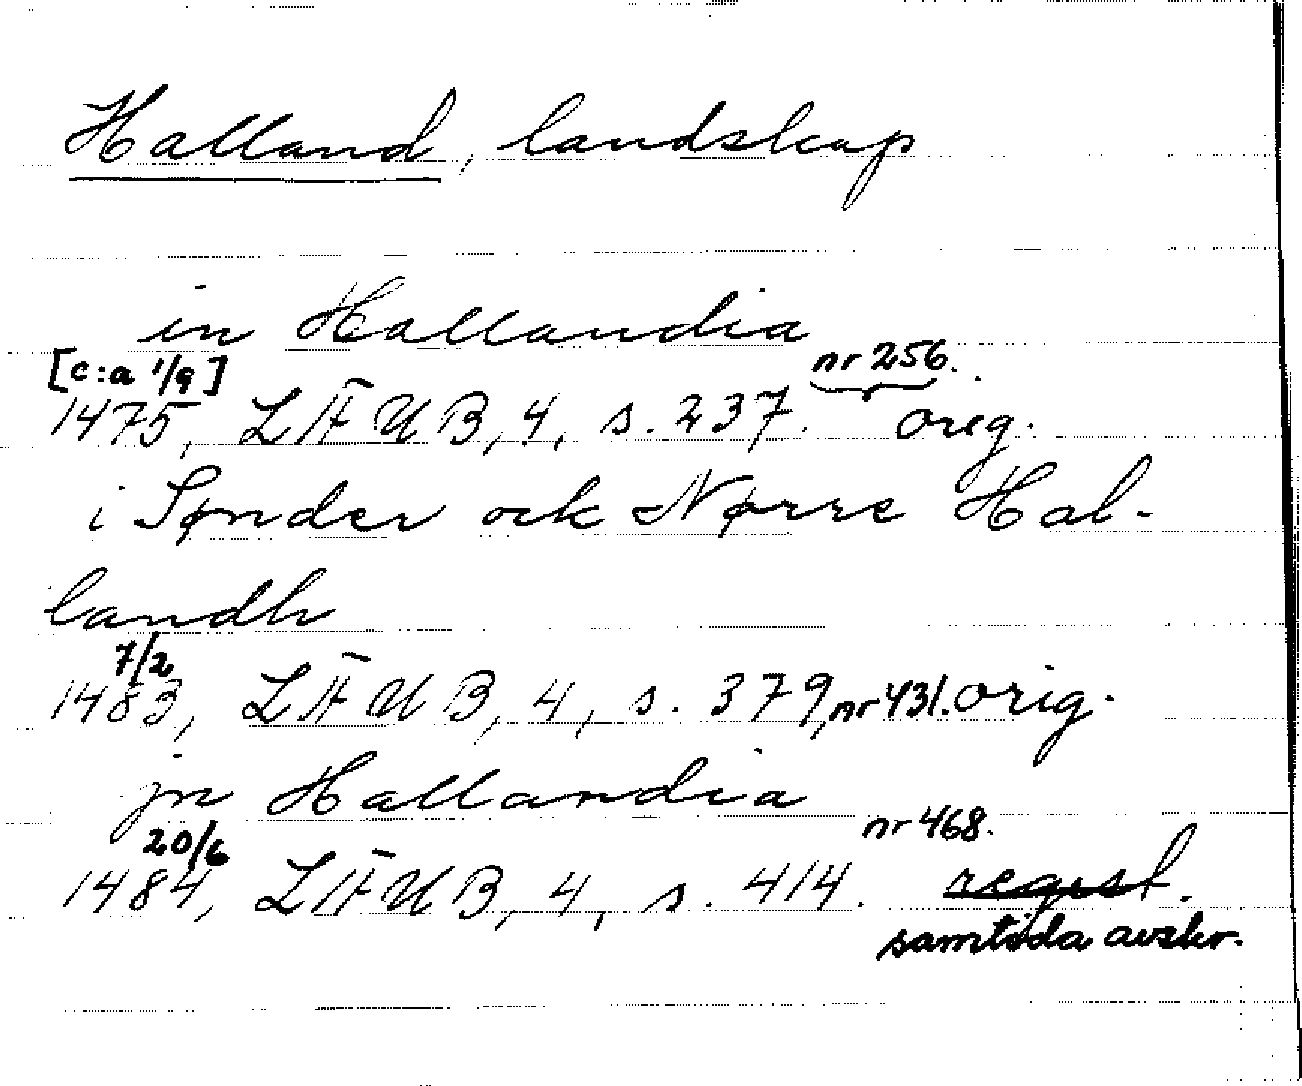 Halland, landskap
in Hallandia
[c:a 1/9] nr 256.
1475, LÄUB, 4, s. 237. orig.
i Sønder ock Nørre Hal-
landh
7/2
1483, LÄUB, 4, s. 379, nr 431. orig.
jn Hallandia
20/6 nr 468.
1484, LÄUB, 4, s. 414. regist.
samtida avskr.